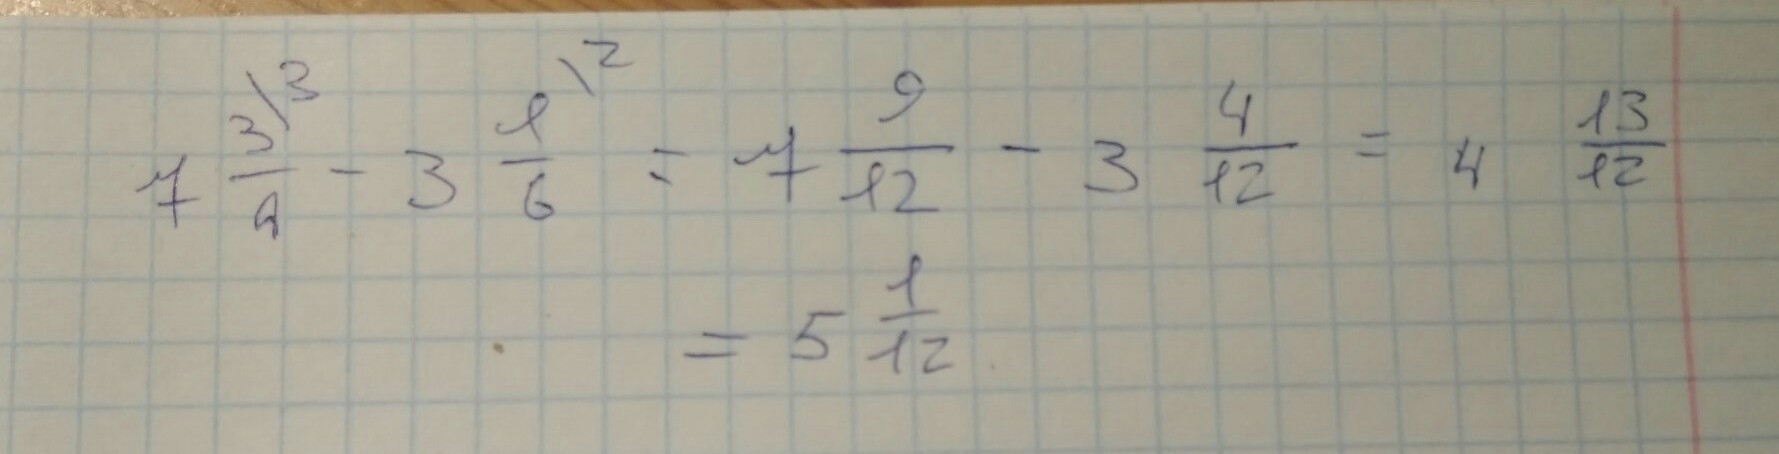 7 3\3/4 - 3 1\2/6 = 7 9/12 - 3 4/12 = 4 13/12
= 5 1/12